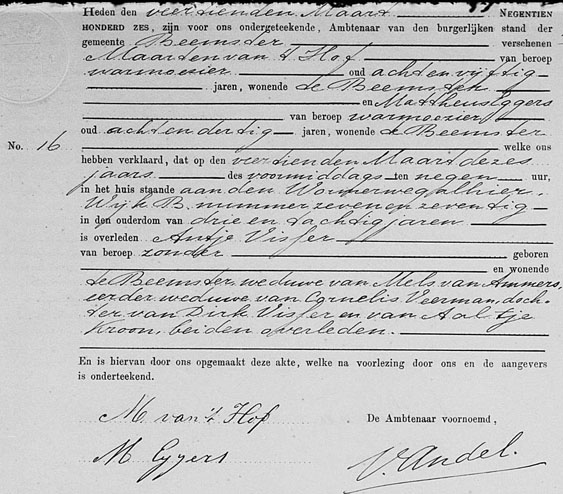 Heden den veertienden Maart NEGENTIEN
HONDERD ZES, zijn voor ons ondergeteekende, Ambtenaar van den burgerlijken stand der
gemeente Beemster verschenen
Maarten van 't Hof van beroep
warmoezier oud acht en vijftig
jaren, wonende te Beemster
en Mattheus Eggers
van beroep warmoezier
oud acht en dertig jaren, wonende te Beemster
No. 16. welke ons
hebben verklaard, dat op den veertienden Maart dezes
jaars des voormiddags ten negen uur,
in het huis staande aan den Wormerweg alhier,
Wijk B. nummer zeven en zeventig
in den ouderdom van drie en tachtig jaren
is overleden Antje Visser
van beroep zonder geboren
en wonende
te Beemster, weduwe van Mels van Ammers,
eerder weduwe van Cornelis Veerman, doch-
ter van Dirk Visser en van Aaltje
Kroon, beiden overleden.
En is hiervan door ons opgemaakt deze akte, welke na voorlezing door ons en de aangevers
is onderteekend.
M van 't Hof
De Ambtenaar voornoemd,
M Eggers
V. Andel.